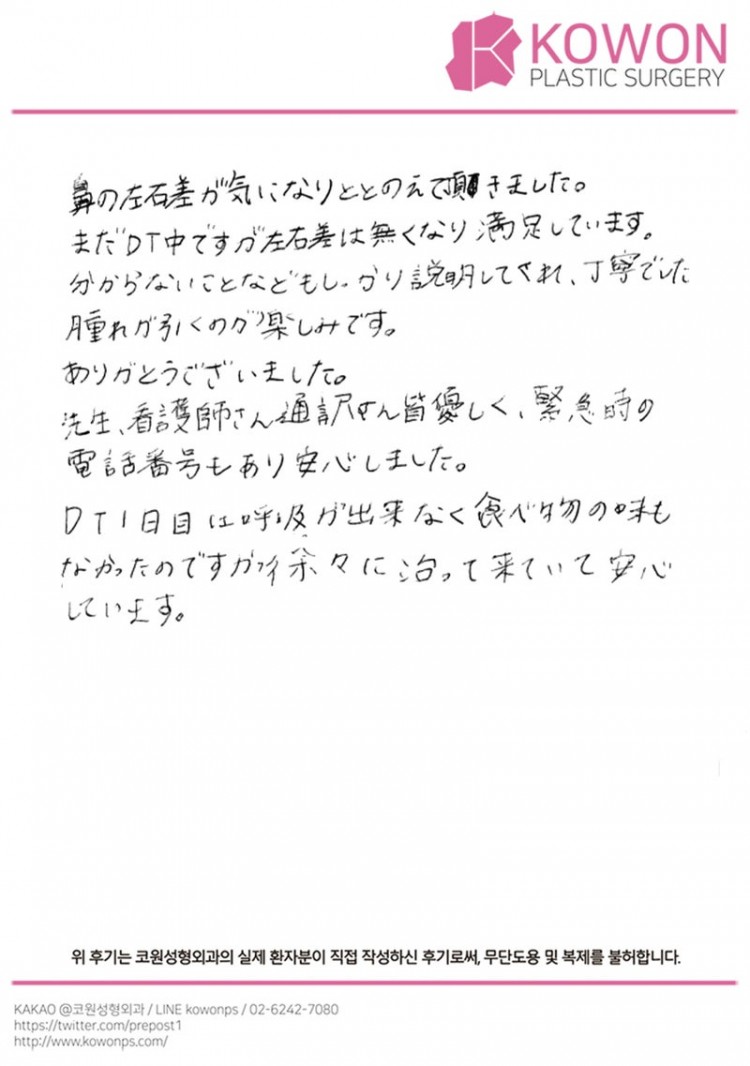 KOWON
PLASTIC SURGERY
鼻の左右差が気になりととのえて頂きました。
まだDT中ですが左右差は無くなり満足しています。
分からないことなどもしっかり説明してくれ、丁寧でした
腫れが引くのが楽しみです。
ありがとうございました。
先生、看護師さん通訳さん皆優しく、緊急時の
電話番号もあり安心しました。
DT1日目は呼吸が出来なく食べ物の味も
なかったのですが徐々に治って来ていて安心
しています。
위 후기는 코원성형외과의 실제 환자분이 직접 작성하신 후기로써, 무단도용 및 복제를 불허합니다.
KAKAO @코원성형외과 / LINE kowonps / 02-6242-7080
https://twitter.com/prepost1
http://www.kowonps.com/